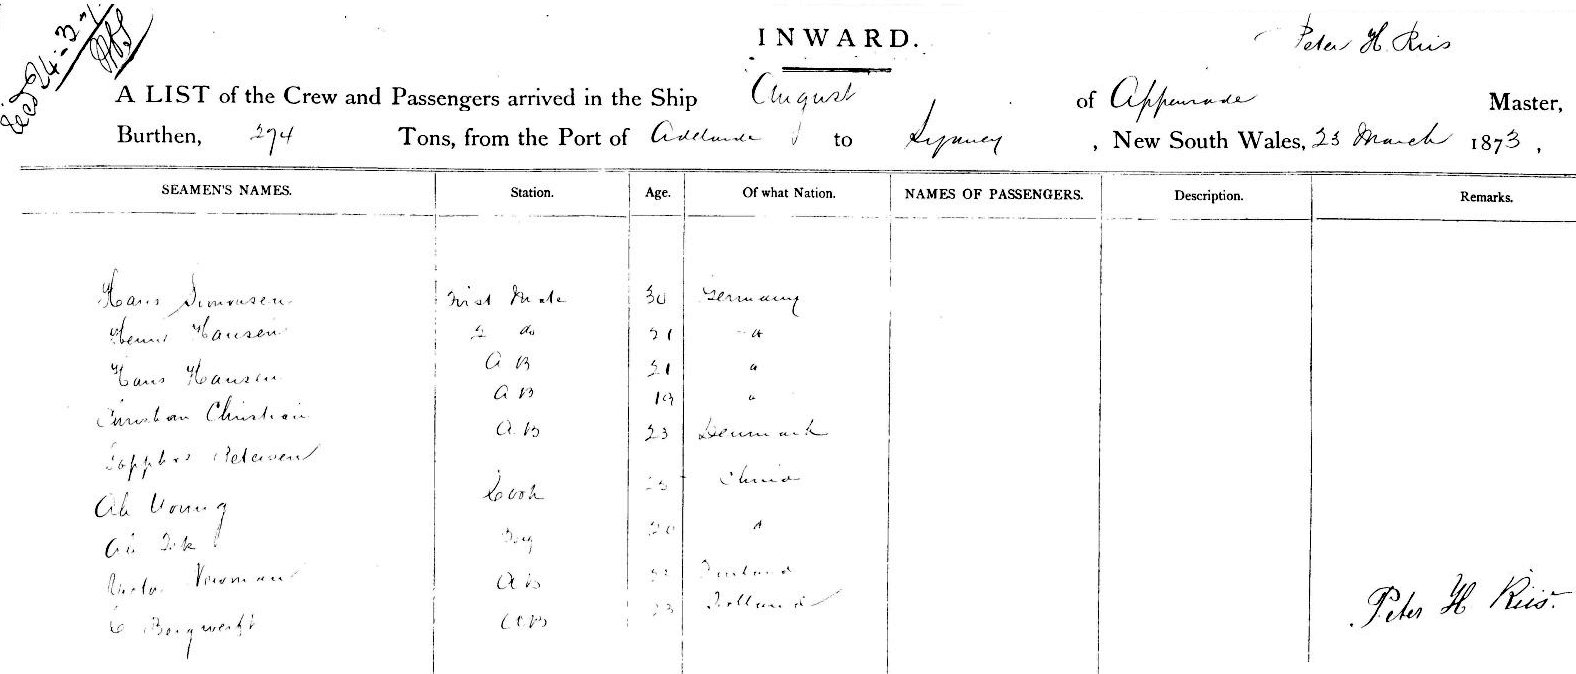 Recd 24-3-71
INWARD.
Peter H. Riis
A LIST of the Crew and Passengers arrived in the Ship August of Appenrade Master,
Burthen, 294 Tons, from the Port of Adelaide to Sydney, New South Wales, 23 March 1873,
SEAMEN'S NAMES. Station. Age. Of what Nation. NAMES OF PASSENGERS. Description. Remarks.
Hans Simonsen First Mate 30 Germany
Hansen 2 do 21 "
Hans Hansen A B 21 "
Christian Christian A B 19 "
Petersen A. B 23 Denmark
Ah Young Cook 23 China
Ah Boy 20 "
Newman A B Finland
C Borgwerft A B 23 Holland
Peter H Riis.